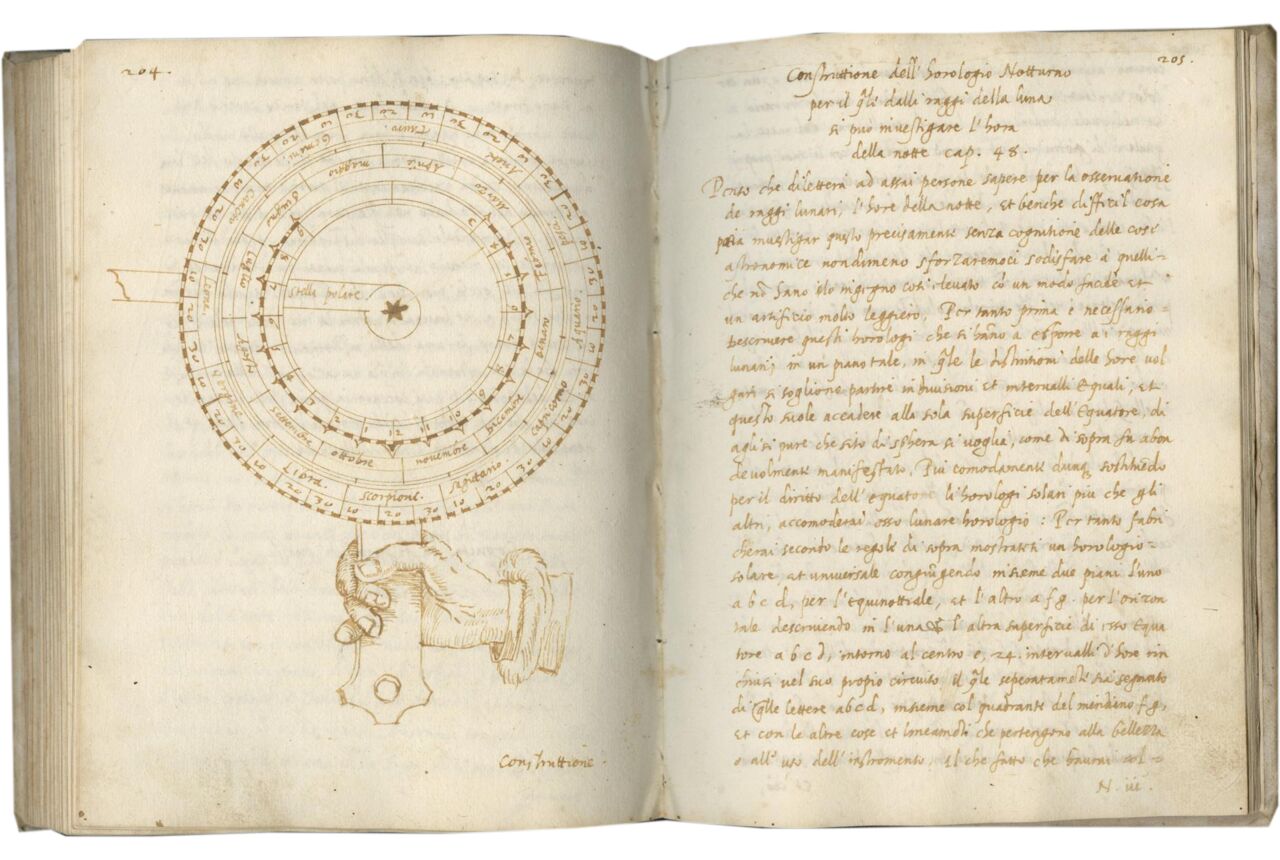 204.
Tauro.
Gemini.
Ariete
Cancro
pesci
Leone.
Aquario.
Capricorno
Libra.
Scorpione.
Sagitario
Aprile
maggio
Marzo
Giugno
Luglio
Agosto
Genaro
settembre
ottobre
novembre
decembre
stella polare
12
Construttione.
205.
Construttione dell' horologio Notturno
per il q̃le dalli raggi della luna
si puo investigare l' hora
della notte cap. 48.
Penso che dilettera ad assai persone sapere per la osservatione
de raggi lunari, l' hore della notte, et benche difficil cosa
investigar questo precisamente senza cognitione delle cose
astronomice nondimeno sforzaremoci sodisfare à quelli-
che nõ hano ingegno cosi elevato cõ un modo facile et
un artificio molto leggiero. Per tanto prima è necessario
descrivere questi horologi che si hãno a esporre a i raggi
lunari, in un piano tale, in q̃le le distintioni delle hore vol
gari si soglione partire in divisioni et intervalli equali, et
questo suole accadere alla sola superficie dell' Equatore, di
che sito di sphera si voglia, come di sopra fu abon
devolmente manifestato. Piu comodamente dunq̃ sostituẽdo
per il diritto dell' equatore li horologi solari piu che gli
altri, accomoderai esso lunare horologio : Per tanto fabri
cherai secondo le regole di sopra mostrateti un horologio-
solare, et universale congiũgendo insieme due piani l'uno
a b c d, per l' Equinottiale, et l' altro a f g. per l' orizon
tale descrivendo in l' una et l' altra superficie di esso Equa
tore a b c d, intorno al centro e, 24. intervalli d' hore rin
chiusi nel suo proprio circuito il q̃le sia segnato
di q̃lle lettere a b c d, insieme col quadrante del meridino f g,
et con le altre cose et lineamẽti che pertengono alla bellezza
o all' uso dell' instromento. Il che fatto che haurai col-
N. iii.